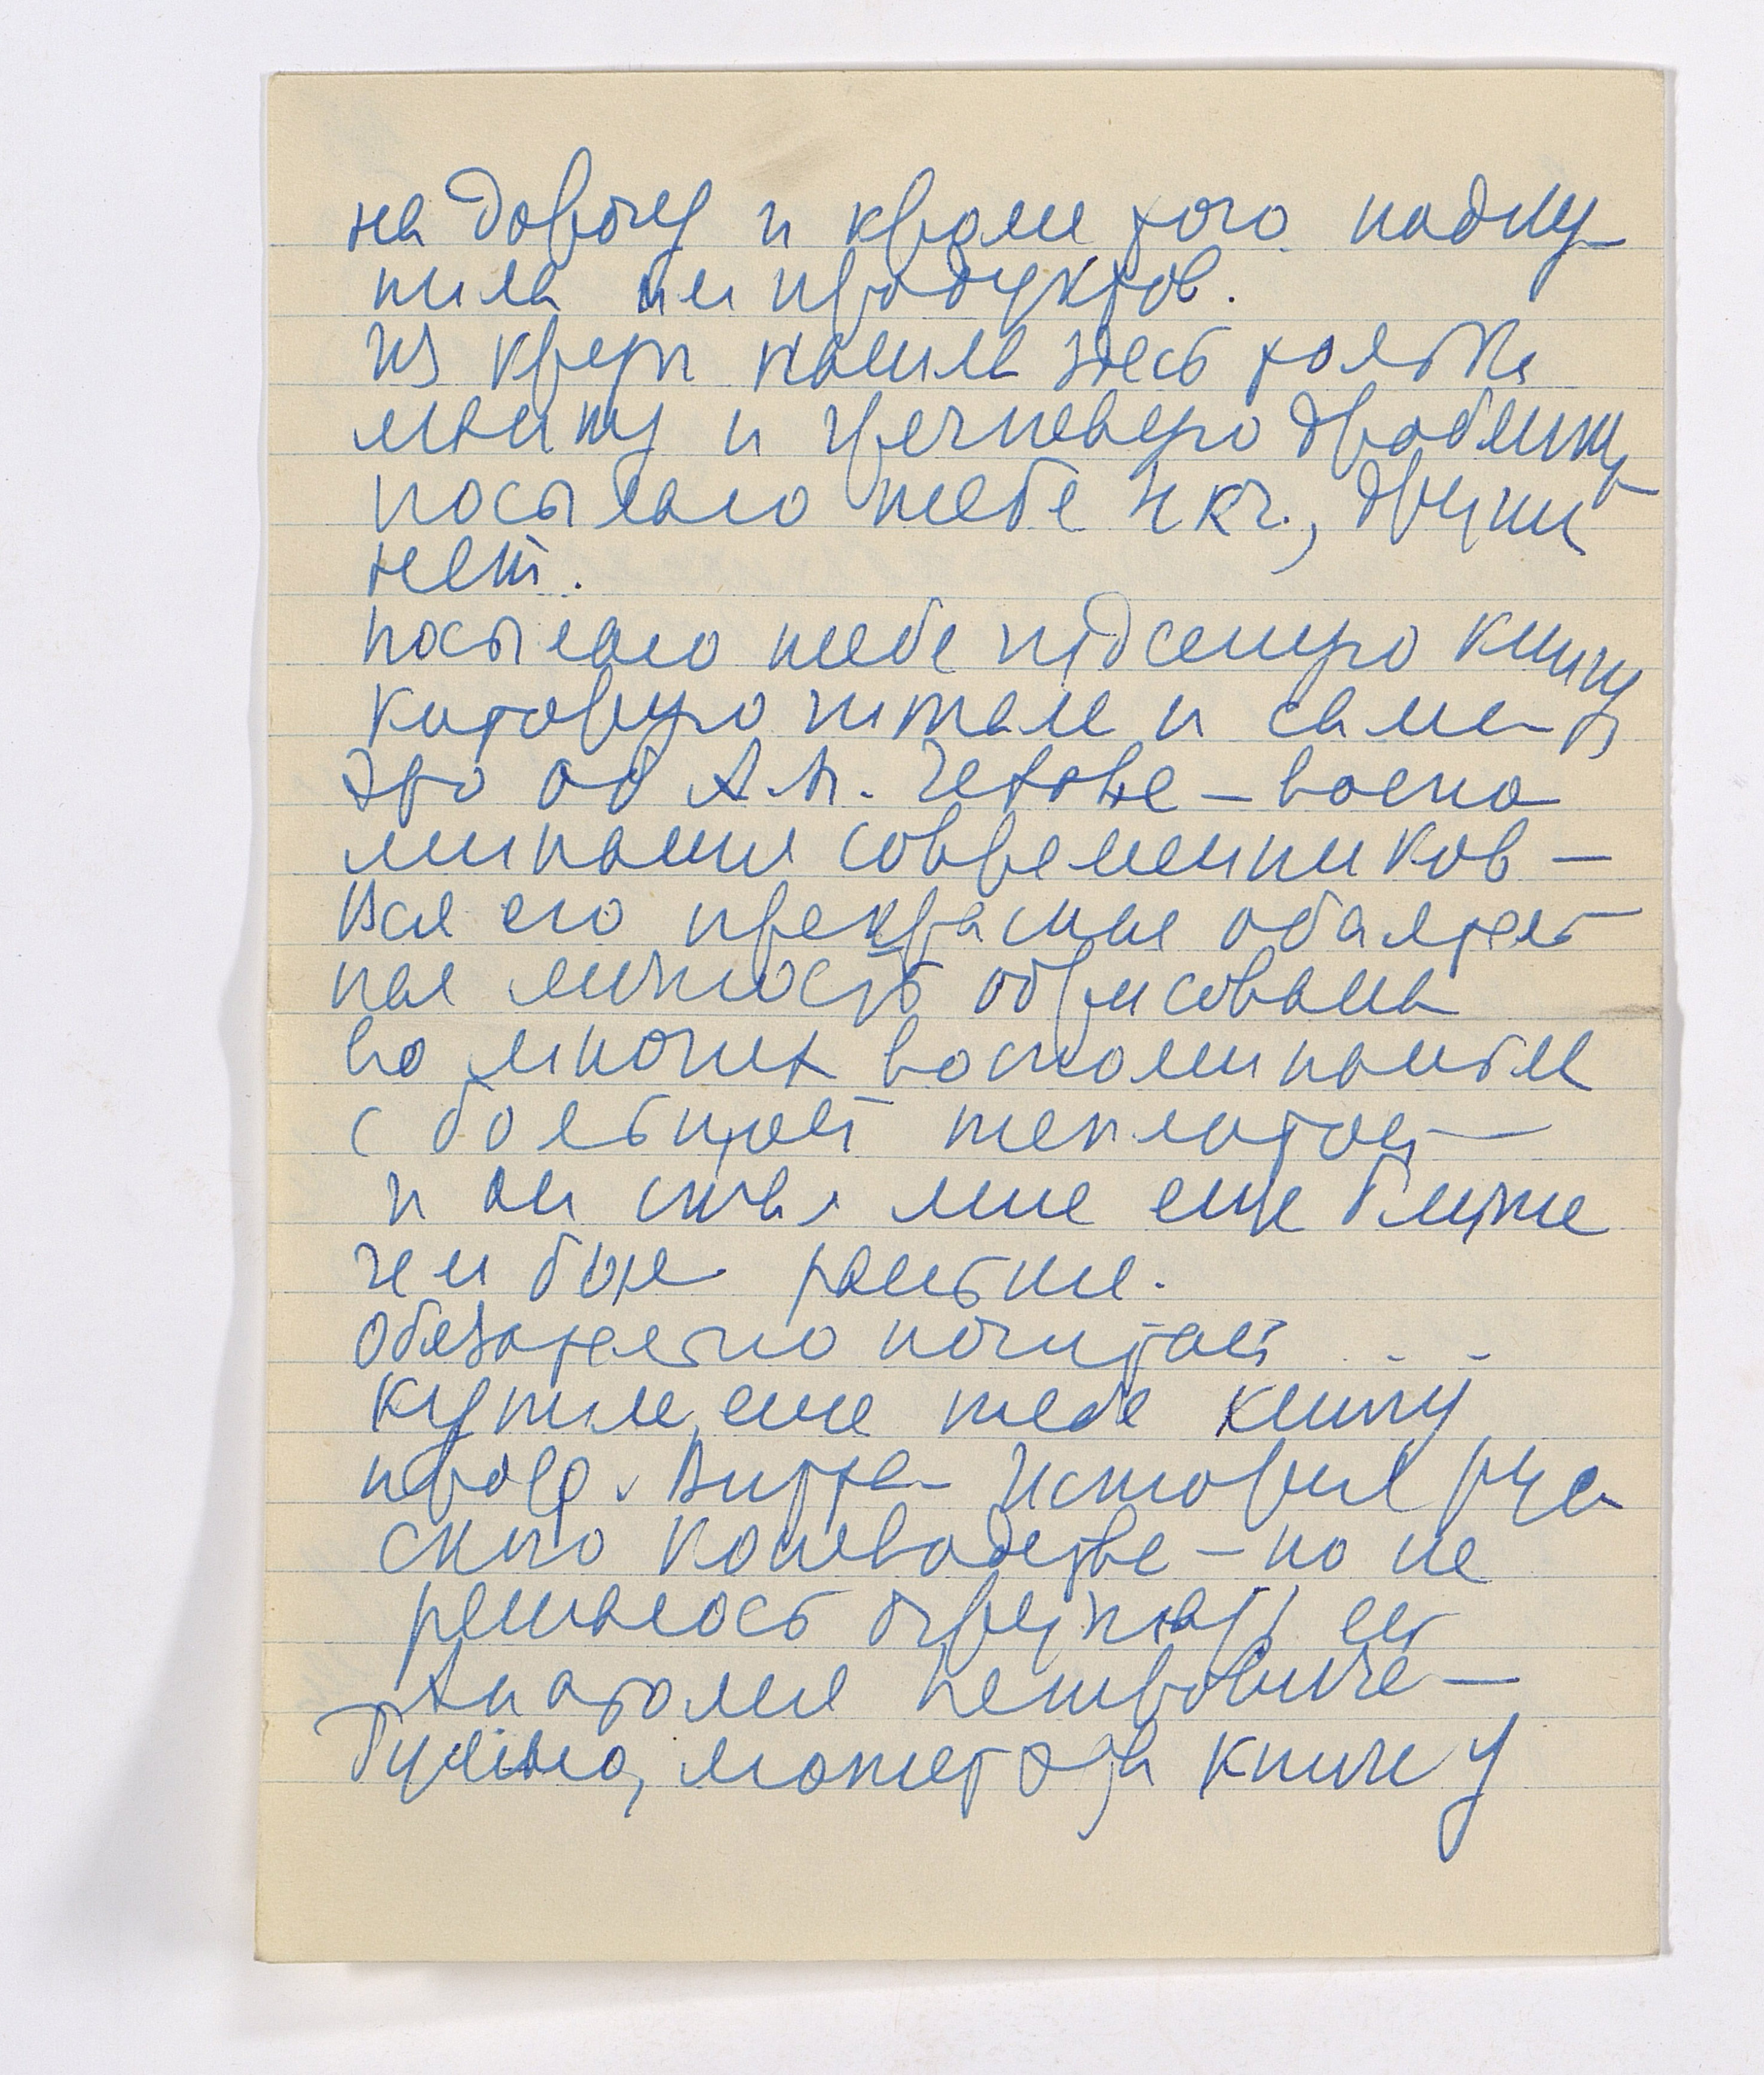 на дорогу и кроме того подку-
пила им продуктов.
Из круп нашла здесь только
манку и гречневую дробленку
посылаю тебе 4 кг., других
нет.
посылаю тебе чудесную книгу
которую читала и сама
Это об А.П. Чехове – воспо
минания современников –
Вся его прекрасная обаятель-
ная личность обрисована
во многих воспоминаньях
с большой теплотой –
и он стал мне еще ближе
чем был раньше.
Обязательно почитай
Купила еще тебе книгу
проф. Витта История рус
ского коневодства – но не
решалась отгружать ее
Анатолия Петровича –
Тучина, может эта книга у